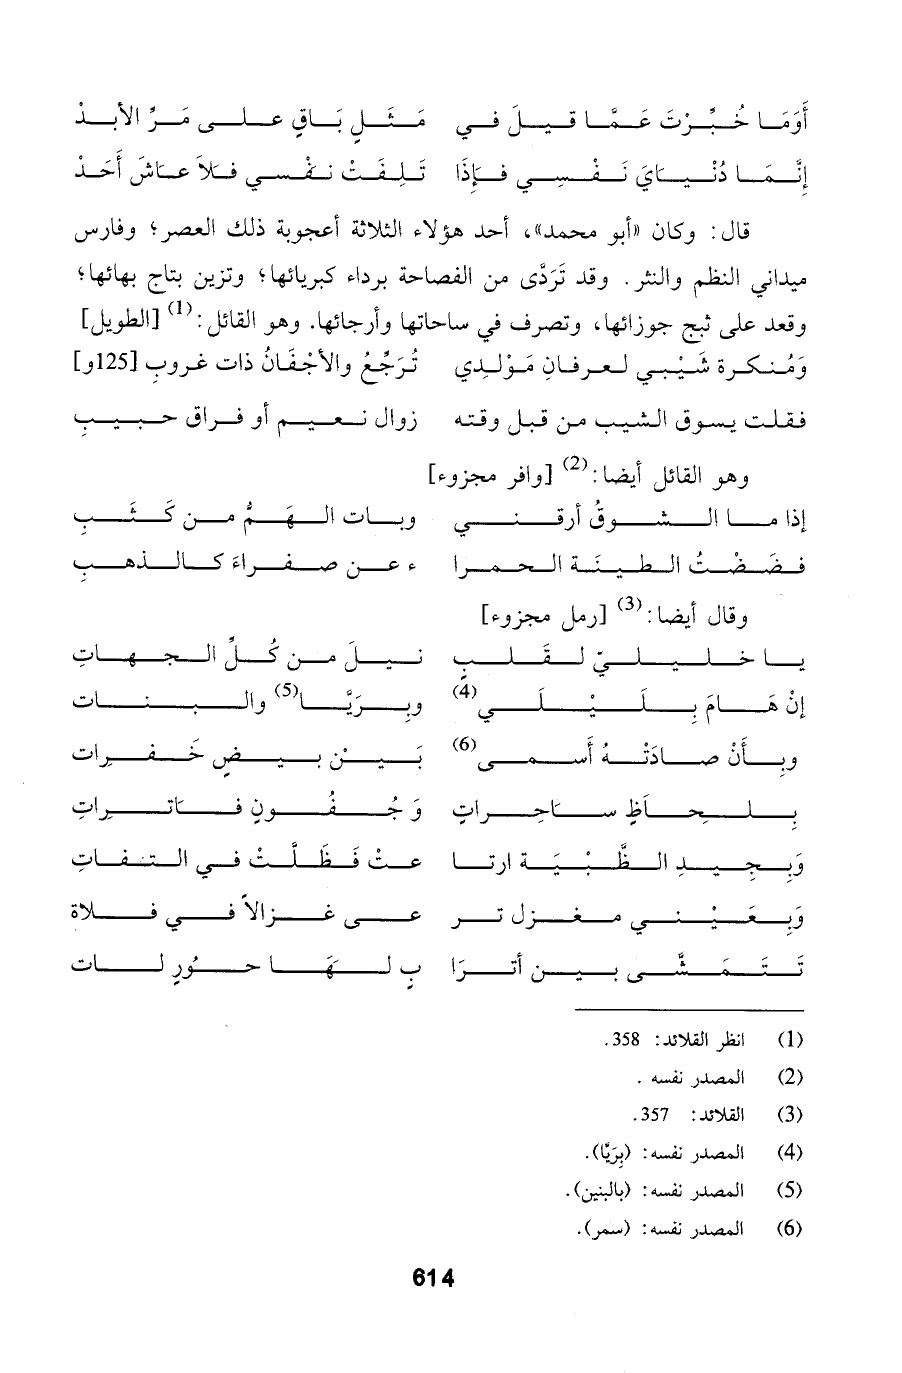 أَوَمَا خُبِّرْتَ عَمَّا قِيلَ فِي مَثَلٍ بَاقٍ على مَرِّ الأبَدْ
إنَّمَا دُنْيَايَ نَفْسِي فإذَا تَلِفَتْ نَفْسِي فَلاَ عَاشَ أَحَدْ
قال: وكان «أبو محمد»، أحد هؤلاء الثلاثة أعجوبة ذلك العصر؛ وفارس
ميداني النظم والنثر. وقد تَرَدَّى من الفصاحة برداء كبريائها؛ وتزين بتاج بهائها؛
وقعد على ثبج جوزائها، وتصرف في ساحاتها وأرجائها. وهو القائل:(1) [الطويل]
وَمُنكرة شَيْبِي لعرفان مَوْلدي تُرَجِّعُ والأجْفَانُ ذات غروب [125و]
فقلت يسوق الشيب من قبل وقته زوال نعيم أو فراق حبيبِ
وهو القائل أيضا:(2) [وافر مجزوء]
إذا ما الشوقُ أرقني وبات الهَمُّ من كَثَبِ
فَضَضْتُ الطينَة الحمرا ء عن صفراءَ كالذهبِ
وقال أيضا:(3) [رمل مجزوء]
يا خليليّ لقَلبٍ نيلَ من كُلِّ الجهاتِ
إنْ هَامَ بِلَيْلَى(4) وبِرَيَّا(5) والبناتِ
وبِأَنْ صادَتْهُ أَسمى(6) بَيْن بيضٍ خَفِراتِ
بِلِحاظٍ سَاحِراتٍ وَجُفُونٍ فَاتِراتِ
وَبِجِيد الظَّبْيَة ارتا عتْ فَظَلَّتْ في التفاتِ
وَبِعَيْنِي مغزل تر عى غزالاً في فلاة
تَتَمَشَّى بين أترَا بٍ لهَا حُورٍ لداتِ
(1) انظر القلائد: 358.
(2) المصدر نفسه .
(3) القلائد: 357.
(4) المصدر نفسه: (بِرَيَّا).
(5) المصدر نفسه: (بالبنين).
(6) المصدر نفسه: (سمر).
614